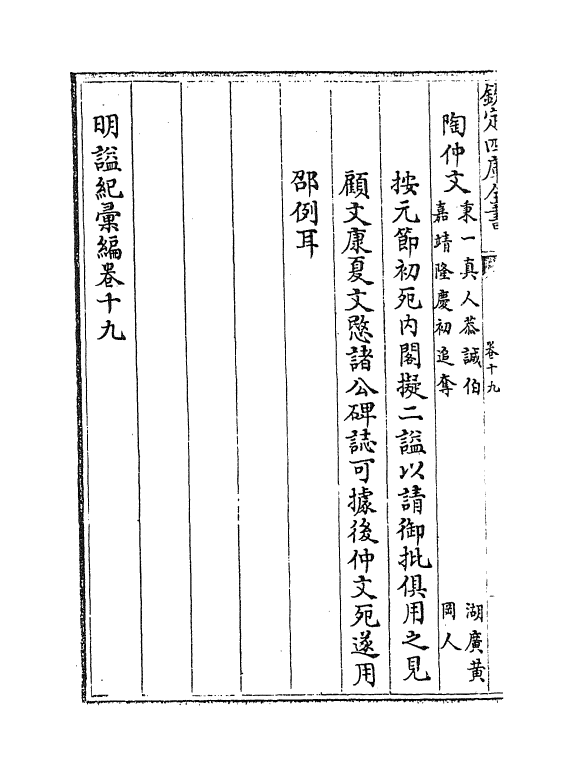 欽定四庫全書
卷十九
陶仲文
秉一真人恭誠伯
嘉靖隆慶初追奪
湖廣黄
岡人
按元節初死内閣擬二謚以請御批俱用之見
顧文康夏文愍諸公碑誌可據後仲文死遂用
邵例耳
明謚紀彚編卷十九